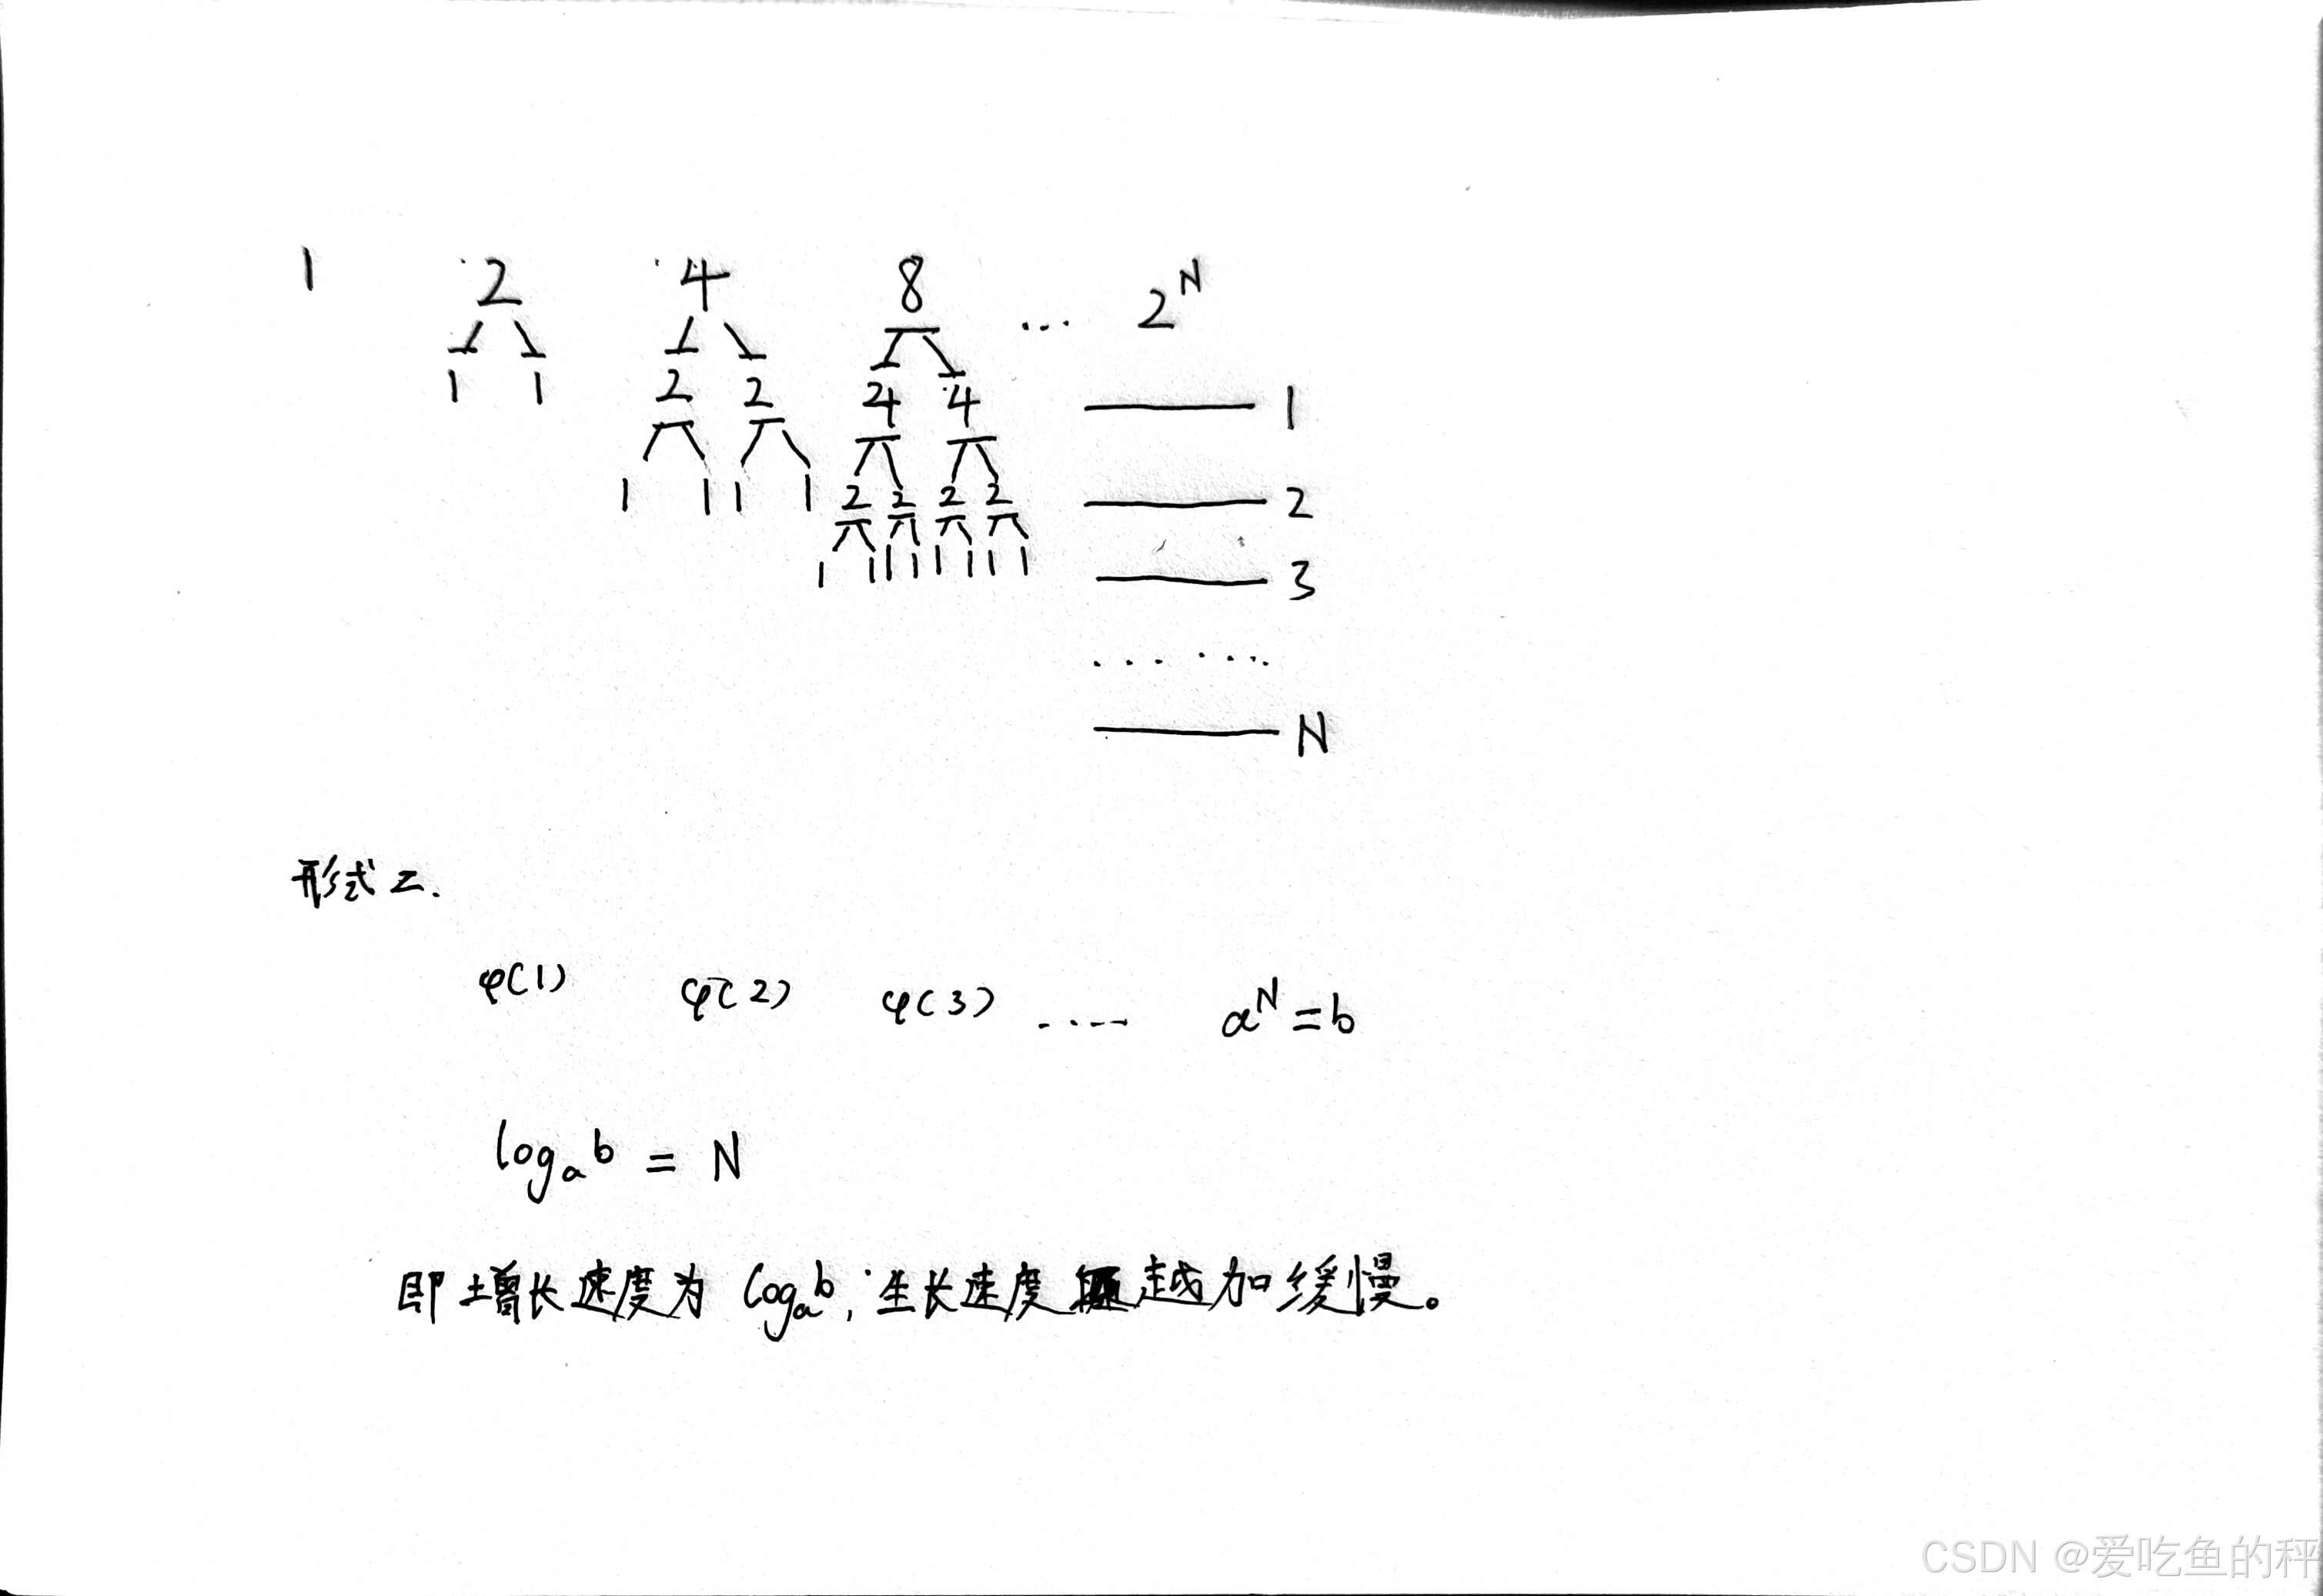 1 2 4 8 ... 2^N
1 1 2 2 4 4 —— 1
1 1 1 1 2 2 2 2 —— 2
1 1 1 1 1 1 1 1 —— 3
.... ....
—— N
形式二.
φ(1) φ(2) φ(3) ..... a^N = b
log_a b = N
即增长速度为 log_a b, 生长速度越加缓慢。
CSDN @爱吃鱼的秤